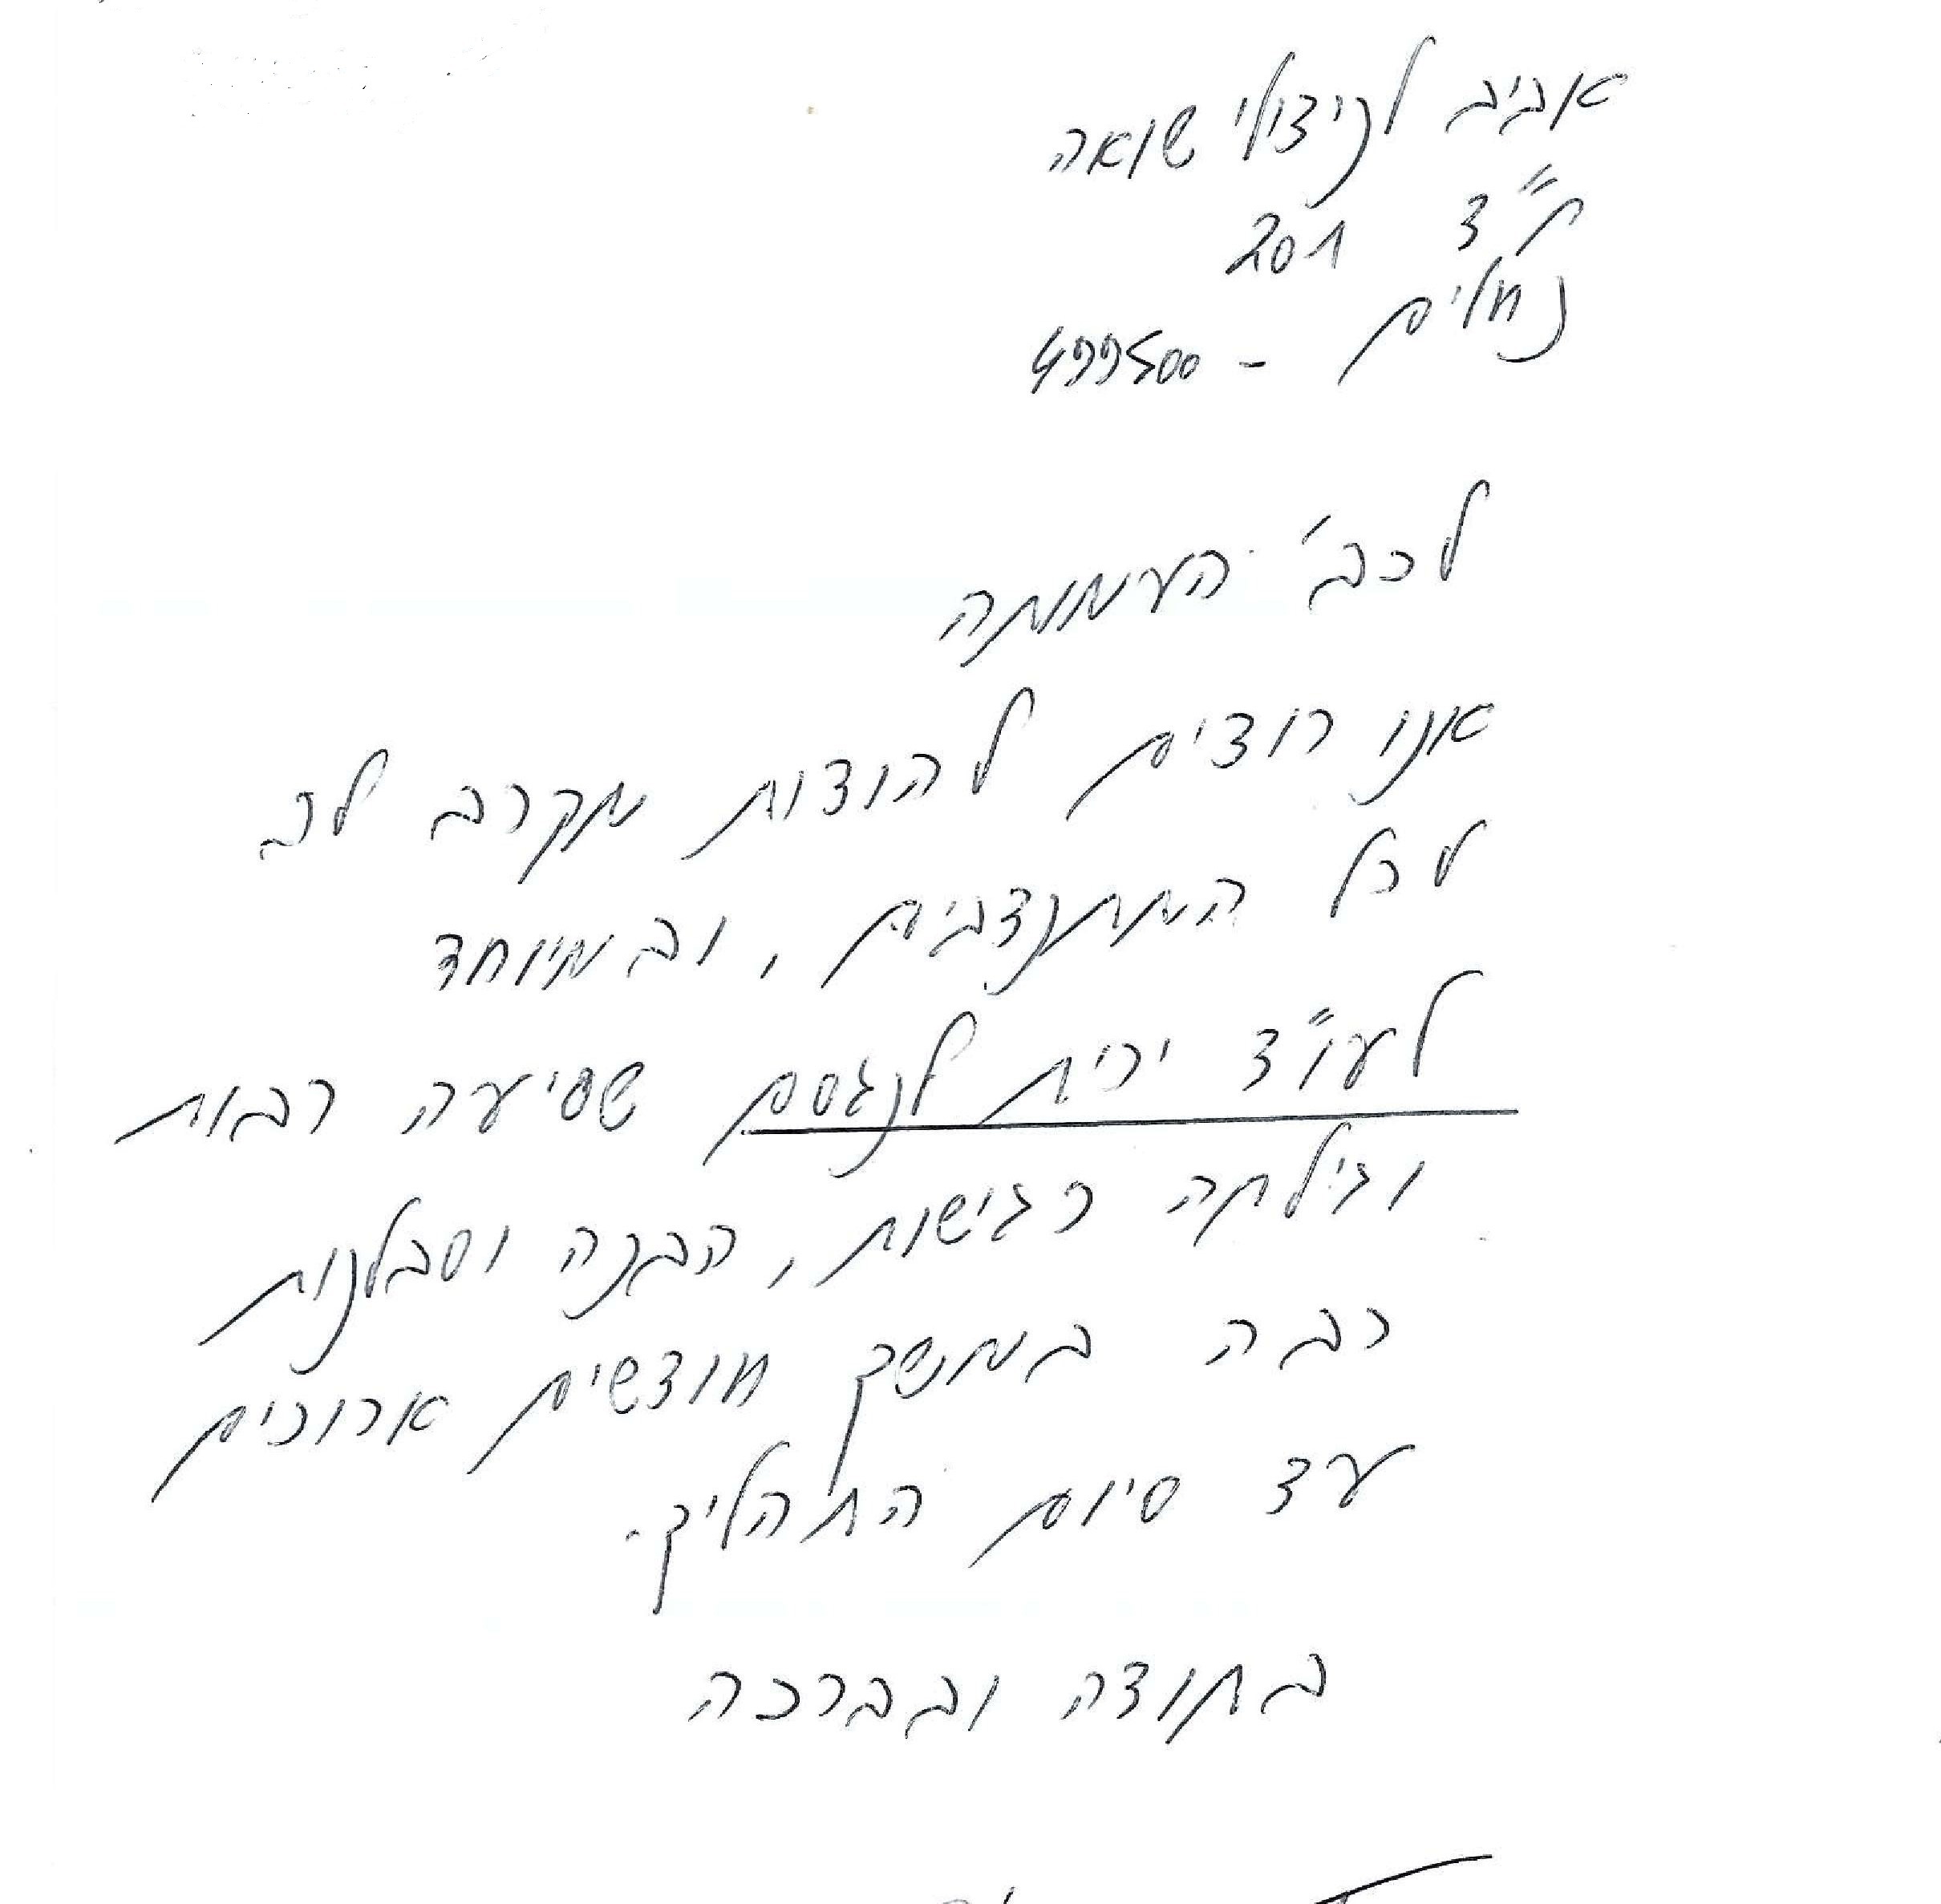 אביב לניצולי שואה
ת"ד 201
נחלים - 499500
לכב' העמותה
אנו רוצים להודות מקרב לב
לכל המתנדבים, ובמיוחד
לעו"ד ירית לנגסם שסיעה רבות
וגילתה רגישות, הבנה וסבלנות
רבה במשך חודשים ארוכים
עד סיום התהליך.
בתודה ובברכה